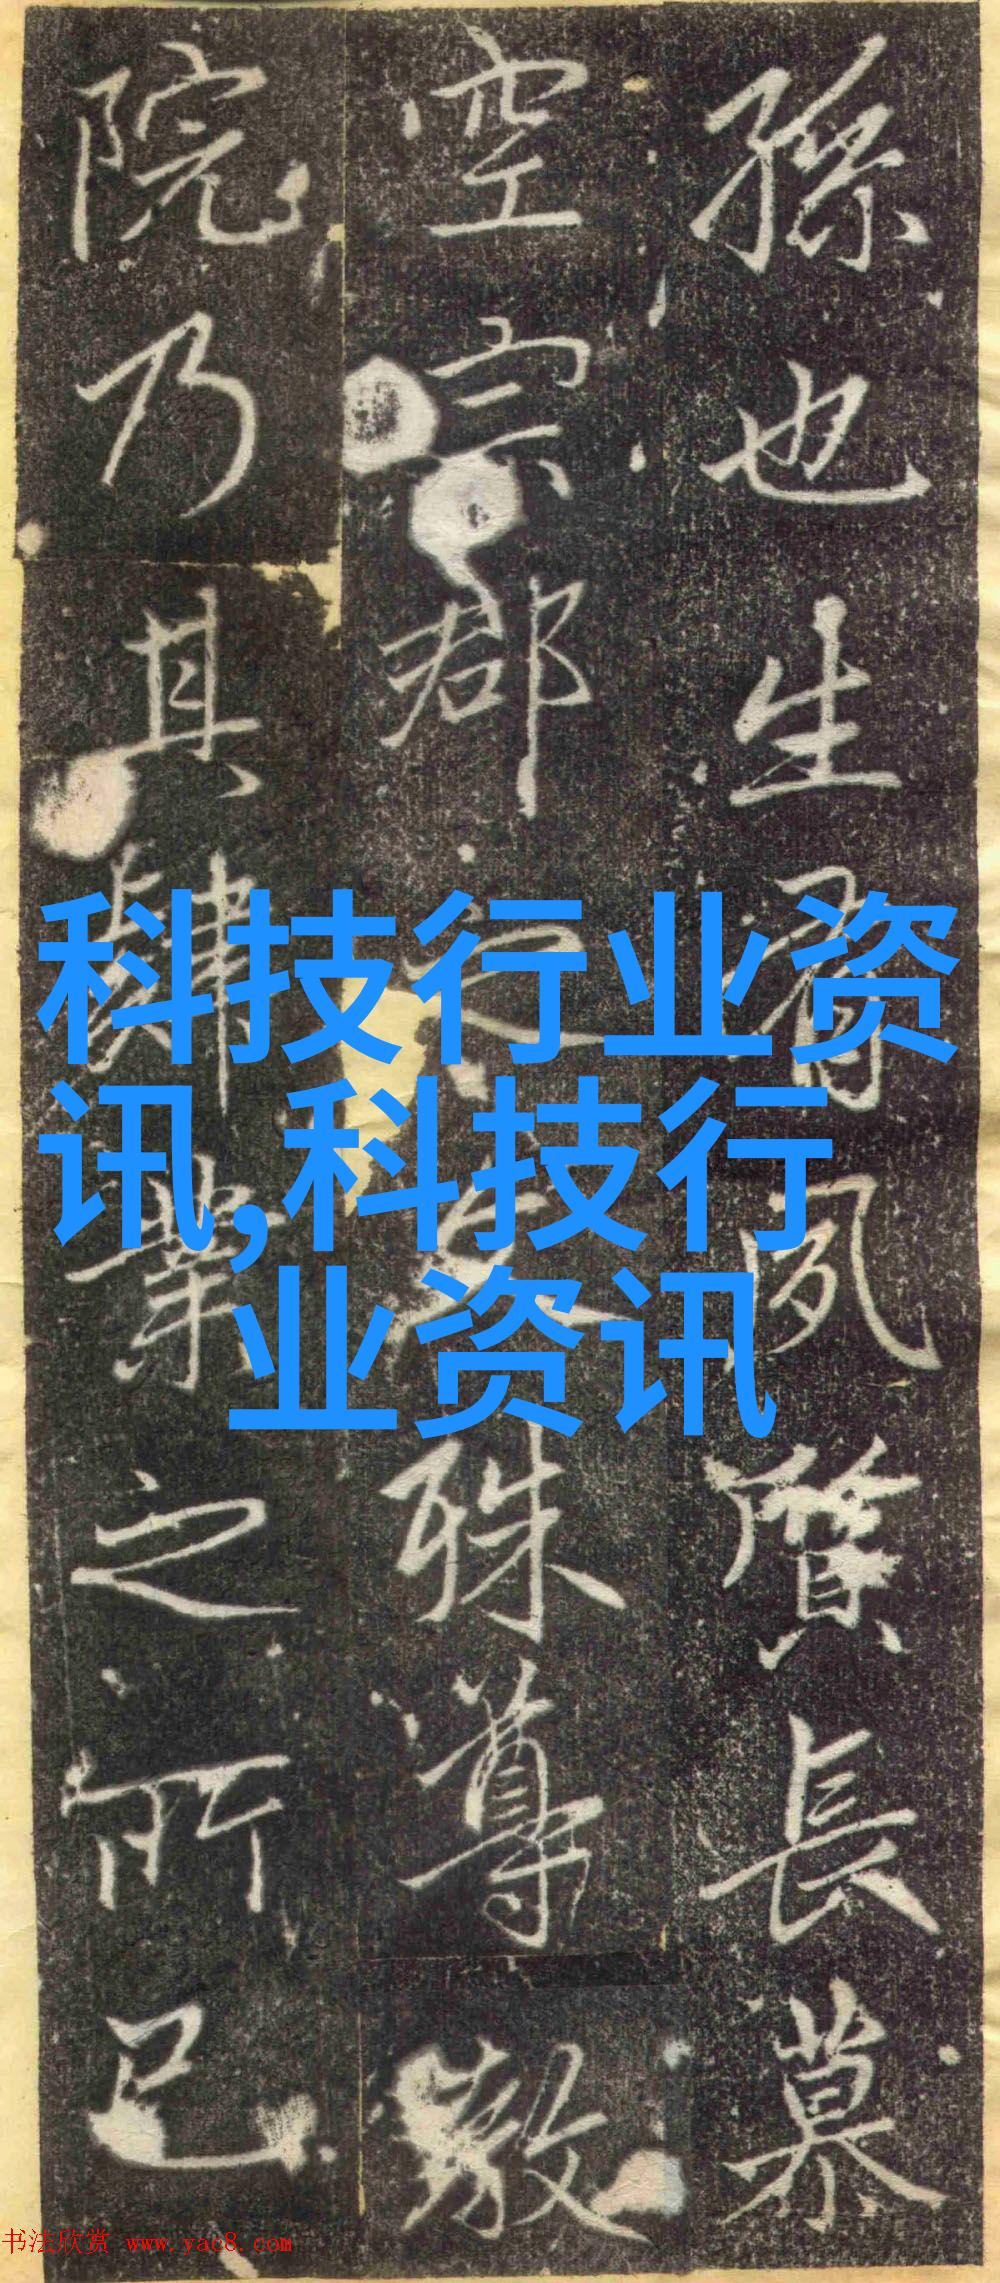 孫也生夙質長慕
空宗郡殊尊敬
院乃其肆業之所已
科技行业资
讯,科技行
业资讯
书法欣赏 www.yac8.com